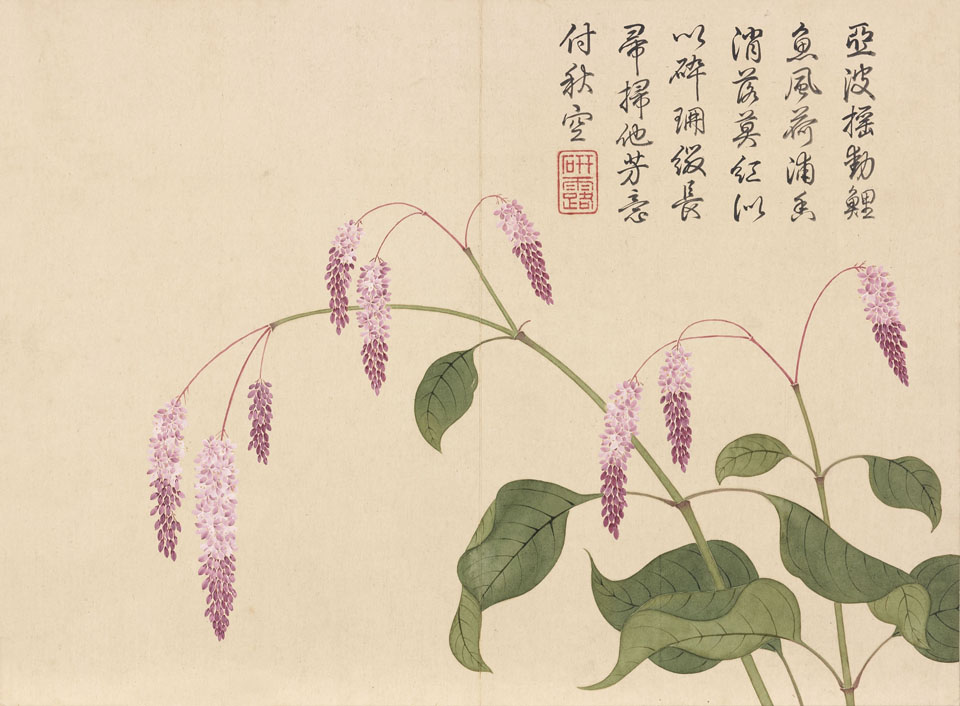 亞波摇動鯉
魚風荷浦香
消落莫紅似
以碎珊綴長
帚掃他芳意
付秋空
研露